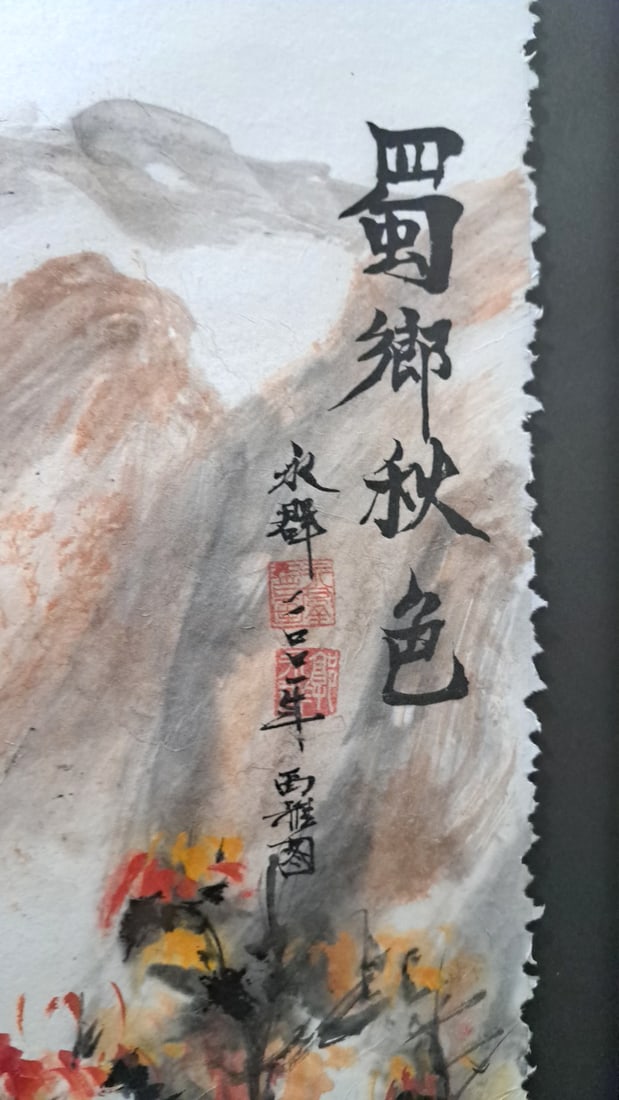 蜀鄉秋色
永群
二〇〇一年
西雅图